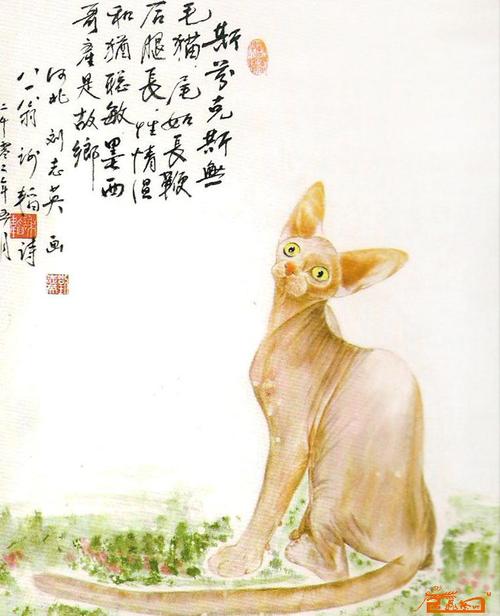 斯芬克斯無
毛猫尾如長鞭
后腿長性情温
和猶聪敏墨西
哥產是故鄉
河北刘志英画
八一翁谢韬诗
二千零二年五月